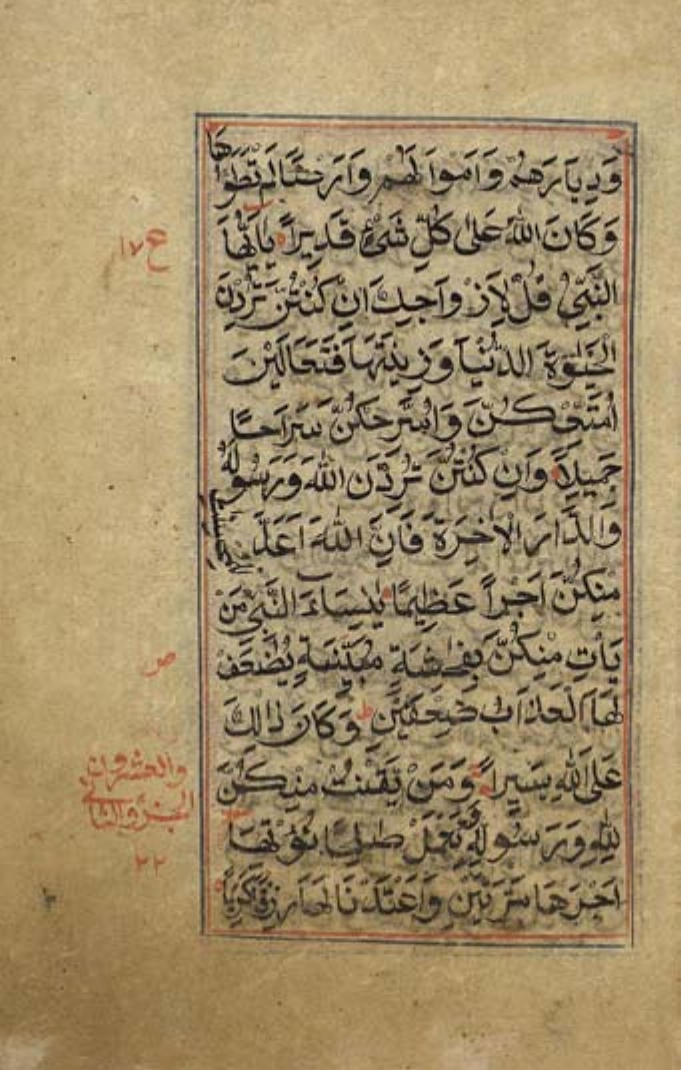 وَدِيَارَهُمْ وَاَمْوَالَهُمْ وَاَرْضًا لَمْ تَطَؤُاهَا
وَكَانَ اللهُ عَلٰى كُلِّ شَىْءٍ قَدِيرًا يٰاَيُّهَا
النَّبِىُّ قُلْ لِاَزْوَاجِكَ اِنْ كُنْتُنَّ تُرِدْنَ
الْحَيٰوةَ الدُّنْيَا وَزِينَتَهَا فَتَعَالَيْنَ
اُمَتِّعْكُنَّ وَاُسَرِّحْكُنَّ سَرَاحًا
جَمِيلًا وَاِنْ كُنْتُنَّ تُرِدْنَ اللهَ وَرَسُولَهُ
وَالدَّارَ الْاٰخِرَةَ فَاِنَّ اللهَ اَعَدَّ للمحسنات
مِنْكُنَّ اَجْرًا عَظِيمًا يٰنِسَاءَ النَّبِىِّ مَنْ
يَأْتِ مِنْكُنَّ بِفٰحِشَةٍ مُبَيِّنَةٍ يُضٰعَفْ
لَهَا الْعَذَابُ ضِعْفَيْنِ ط وَكَانَ ذٰلِكَ
عَلَى اللهِ يَسِيرًا وَمَنْ يَقْنُتْ مِنْكُنَّ
لِلّٰهِ وَرَسُولِهِ وَتَعْمَلْ صٰلِحًا نُؤْتِهَا
اَجْرَهَا مَرَّتَيْنِ وَاَعْتَدْنَا لَهَا رِزْقًا كَرِيمًا
ع ١٧
ص
والعشرون
الجزو الثانى
٢٢